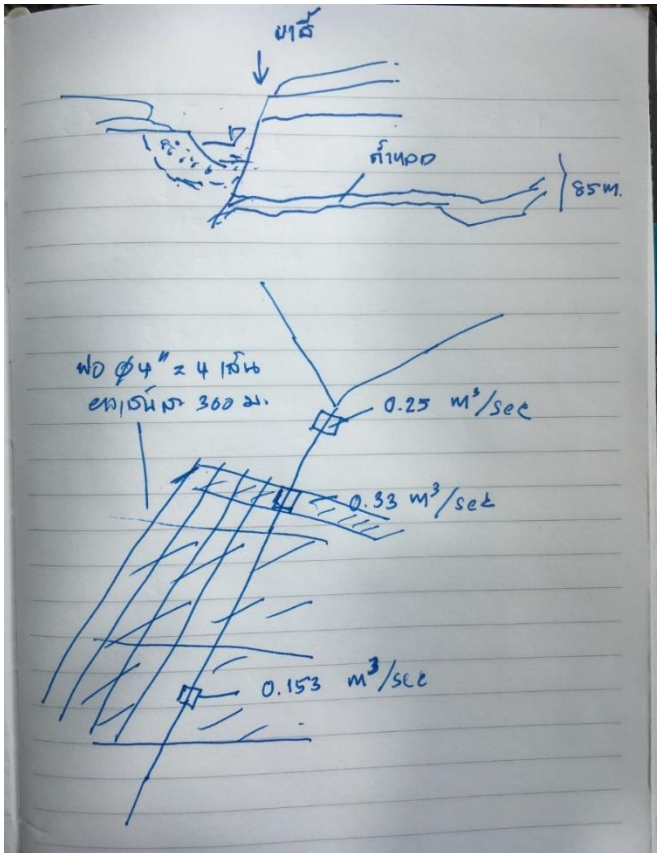 ผาสี
ถ้ำหลวง
85 m.
ท่อ ø 4" = 4 เส้น
ยาวเส้นละ 300 ม.
0.25 m³/sec
0.33 m³/sec
0.153 m³/sec